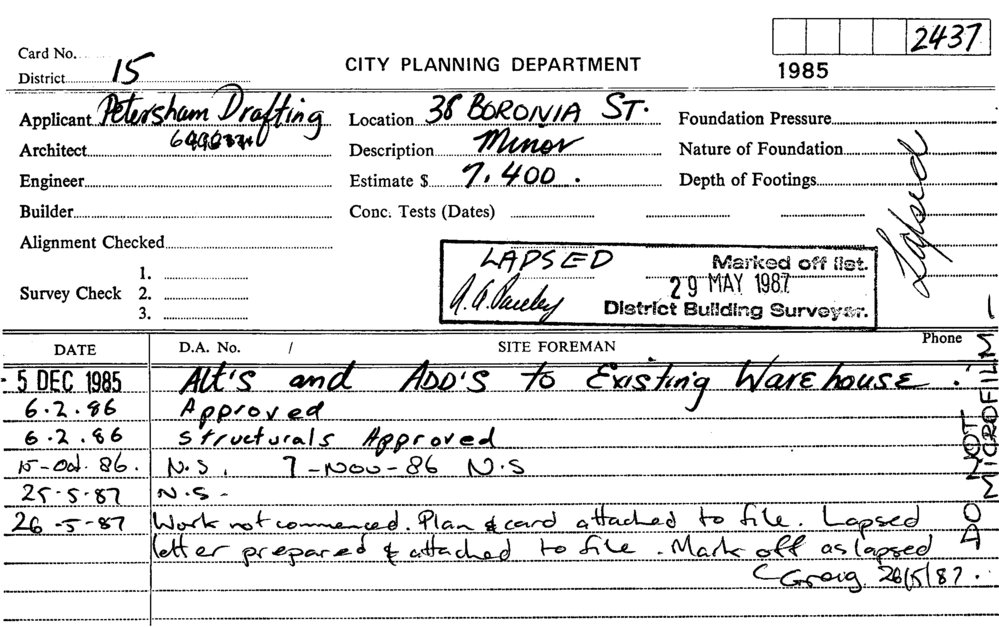 2437
Card No.
District 15
CITY PLANNING DEPARTMENT
1985
Applicant Petersham Drafting
Location 38 BORONIA ST.
Foundation Pressure
Architect
Description Minor
Nature of Foundation
Engineer
Estimate $ 7,400.
Depth of Footings
Builder
Conc. Tests (Dates)
Lapsed
Alignment Checked
Survey Check 1.
2.
3.
LAPSED
Marked off list.
29 MAY 1987
District Building Surveyor.
DATE D.A. No. / SITE FOREMAN Phone
- 5 DEC 1985 Alt's and ADD'S to Existing Warehouse.
6.2.86 Approved
6.2.86 Structurals Approved
15-Oct. 86. N.S. 7-Nov-86 N.S
25-5-87 N.S-
26-5-87 Work not commenced. Plan & card attached to file. Lapsed
letter prepared & attached to file. Mark off as lapsed
C Greig 26/5/87.
DO NOT
MICROFILM